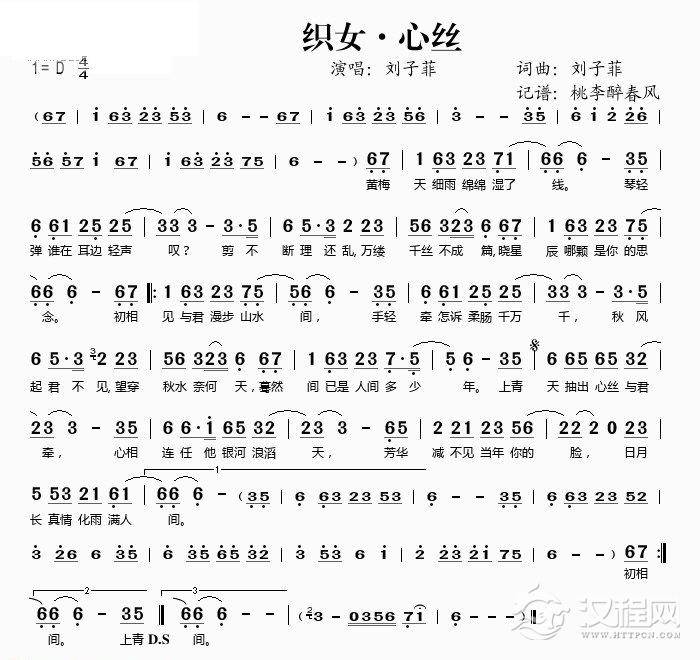 织女·心丝
1=D 4/4 演唱：刘子菲 词曲：刘子菲
记谱：桃李醉春风
(67 | i 63 23 53 | 6 - - 67 | i 63 23 56 | 3 - - 35 | 6 i 2 26 |
56 57 i 67 | i 63 23 75 | 6 - - ) 67 | 1 63 23 71 | 66 6 - 35 |
黄梅 天 细雨 绵绵 湿了 线。 琴轻
6 61 25 25 | 33 3 - 3·5 | 6 5·3 2 23 | 56 323 6 67 | 1 63 23 75 |
弹 谁在 耳边 轻声 叹？ 剪 不 断 理 还 乱，万缕 千丝 不成 篇，晓星 辰 哪颗 是你 的思
66 6 - 67 |: 1 63 23 75 | 56 6 - 35 | 6 61 25 25 | 33 3 - 3·5 |
念。 初相 见 与君 漫步 山水 间， 手轻 牵 怎诉 柔肠 千万 千， 秋 风
6 5·3 2 23 | 56 323 6 67 | 1 63 23 7·5 | 5 6 - 35 | 6 65 65 32 |
起 君 不 见，望穿 秋水 奈何 天，蓦然 间 已是 人间 多 少 年。 上青 天 抽出 心丝 与君
23 3 - 35 | 6 6·i 65 32 | 23 3 - 65 | 2 21 23 56 | 2 2 0 23 |
牵， 心相 连 任 他 银河 浪滔 天， 芳华 减 不见 当年 你的 脸， 日月
5 53 21 61 | 66 6 - (35 | 6 63 23 53 | 6 - - 35 | 6 63 23 52 |
1
长 真情 化雨 满人 间。
3 26 6 35 | 6 13 6 35 | 3 53 6 i | 2 23 2i 75 | 6 - - ) 67 :|
初相
2 3
66 6 - 35 || 66 6 - (3 - 0356 71 | 6 - - - )||
间。 上青 D.S 间。
汉程网
WWW.HTTPCN.COM